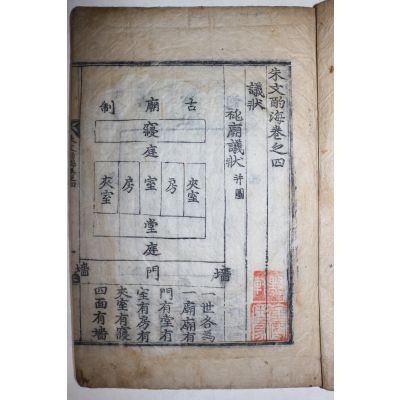 朱文酌海卷之四
議狀
祧廟議狀 并圖
古廟制
寢
庭
夾室
房
室
房
夾室
堂
庭
門
墻
墻
一世各為
一廟廟有
門有堂有
室有房有
夾室有寢
四面有墻